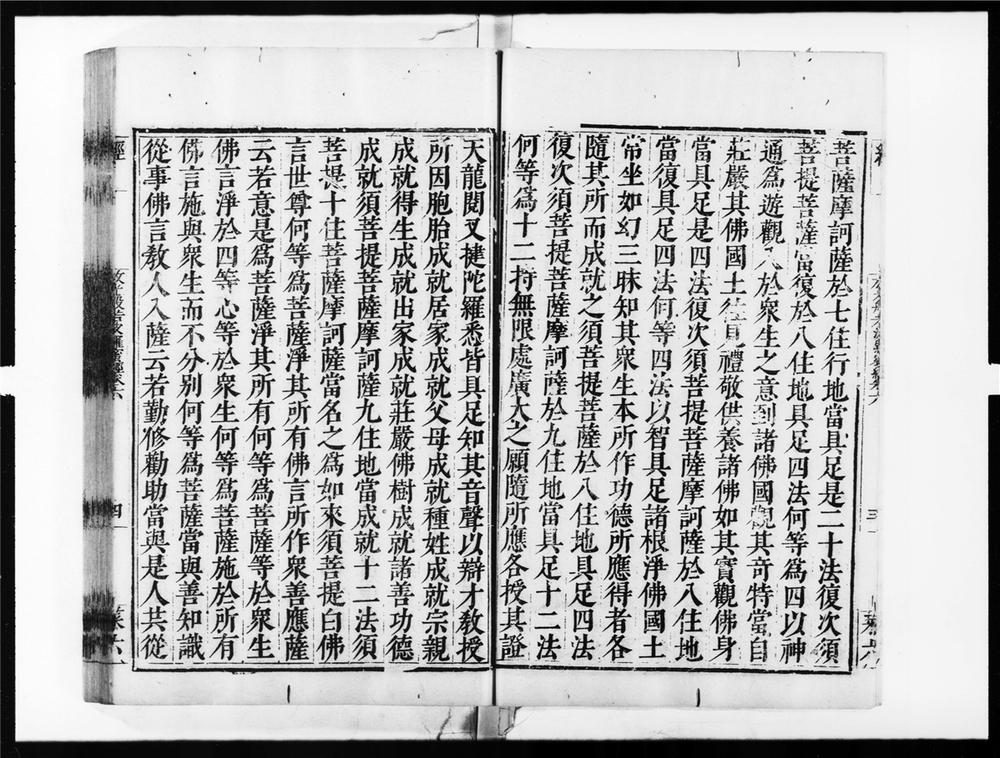 菩薩摩訶薩於七住行地當具足是二十法復次須
菩提菩薩當復於八住地具足四法何等為四以神
通為遊觀入於衆生之意到諸佛國觀其奇特當自
莊嚴其佛國土往見禮敬供養諸佛如其實觀佛身
當具足是四法復次須菩提菩薩摩訶薩於八住地
當復具足四法何等四法以智具足諸根淨佛國土
常坐如幻三昧知其衆生本所作功德所應得者各
隨其所而成就之須菩提菩薩於八住地具足四法
復次須菩提菩薩摩訶薩於九住地當具足十二法
何等為十二持無限處廣大之願隨所應各授其證
天龍閱叉揵陀羅悉皆具足知其音聲以辯才教授
所因胞胎成就居家成就父母成就種姓成就宗親
成就得生成就出家成就莊嚴佛樹成就諸善功德
成就須菩提菩薩摩訶薩九住地當成就十二法須
菩提十住菩薩摩訶薩當名之為如來須菩提白佛
言世尊何等為菩薩淨其所有佛言所作衆善應薩
云若意是為菩薩淨其所有何等為菩薩等於衆生
佛言淨於四等心等於衆生何等為菩薩施於所有
佛言施與衆生而不分別何等為菩薩當與善知識
從事佛言教人入薩云若勤修勸助當與是人共從
經
四